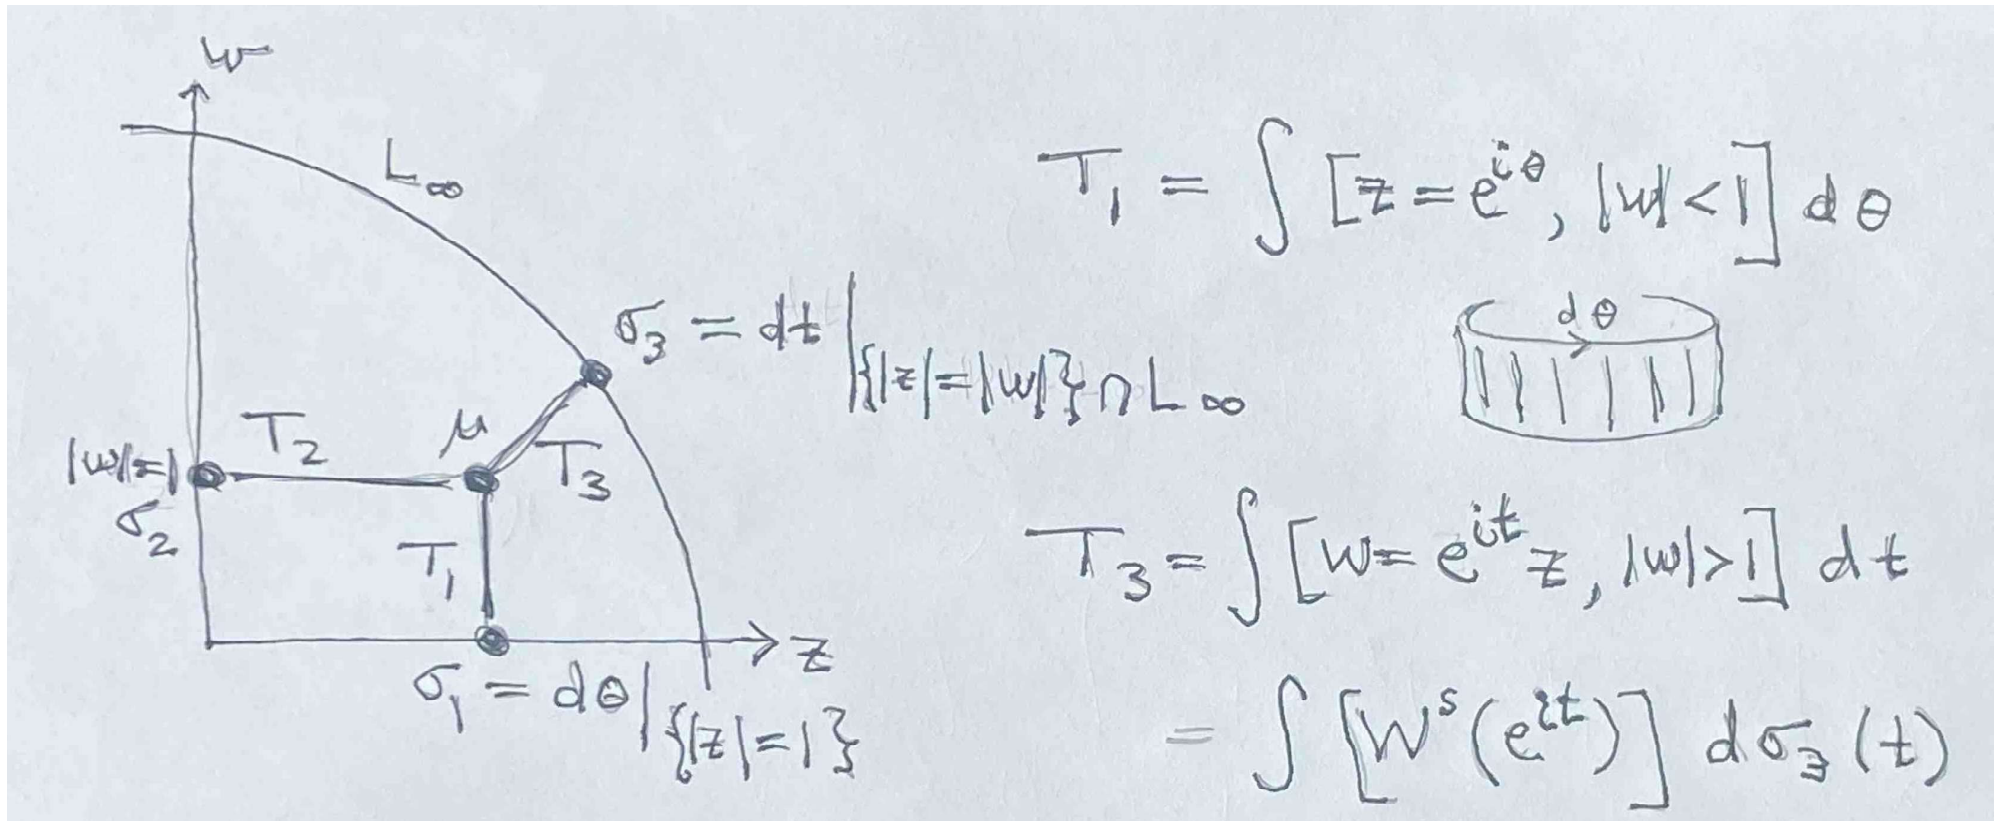 w
L∞
σ₃ = dt|{|z|=|w|}∩L∞
T₂
μ
T₃
|w|=1
σ₂
T₁
z
σ₁ = dθ|{|z|=1}
T₁ = ∫ [z = e^{iθ}, |w| < 1] dθ
dθ
T₃ = ∫ [w = e^{it} z, |w| > 1] dt
= ∫ [W^s(e^{it})] dσ₃(t)